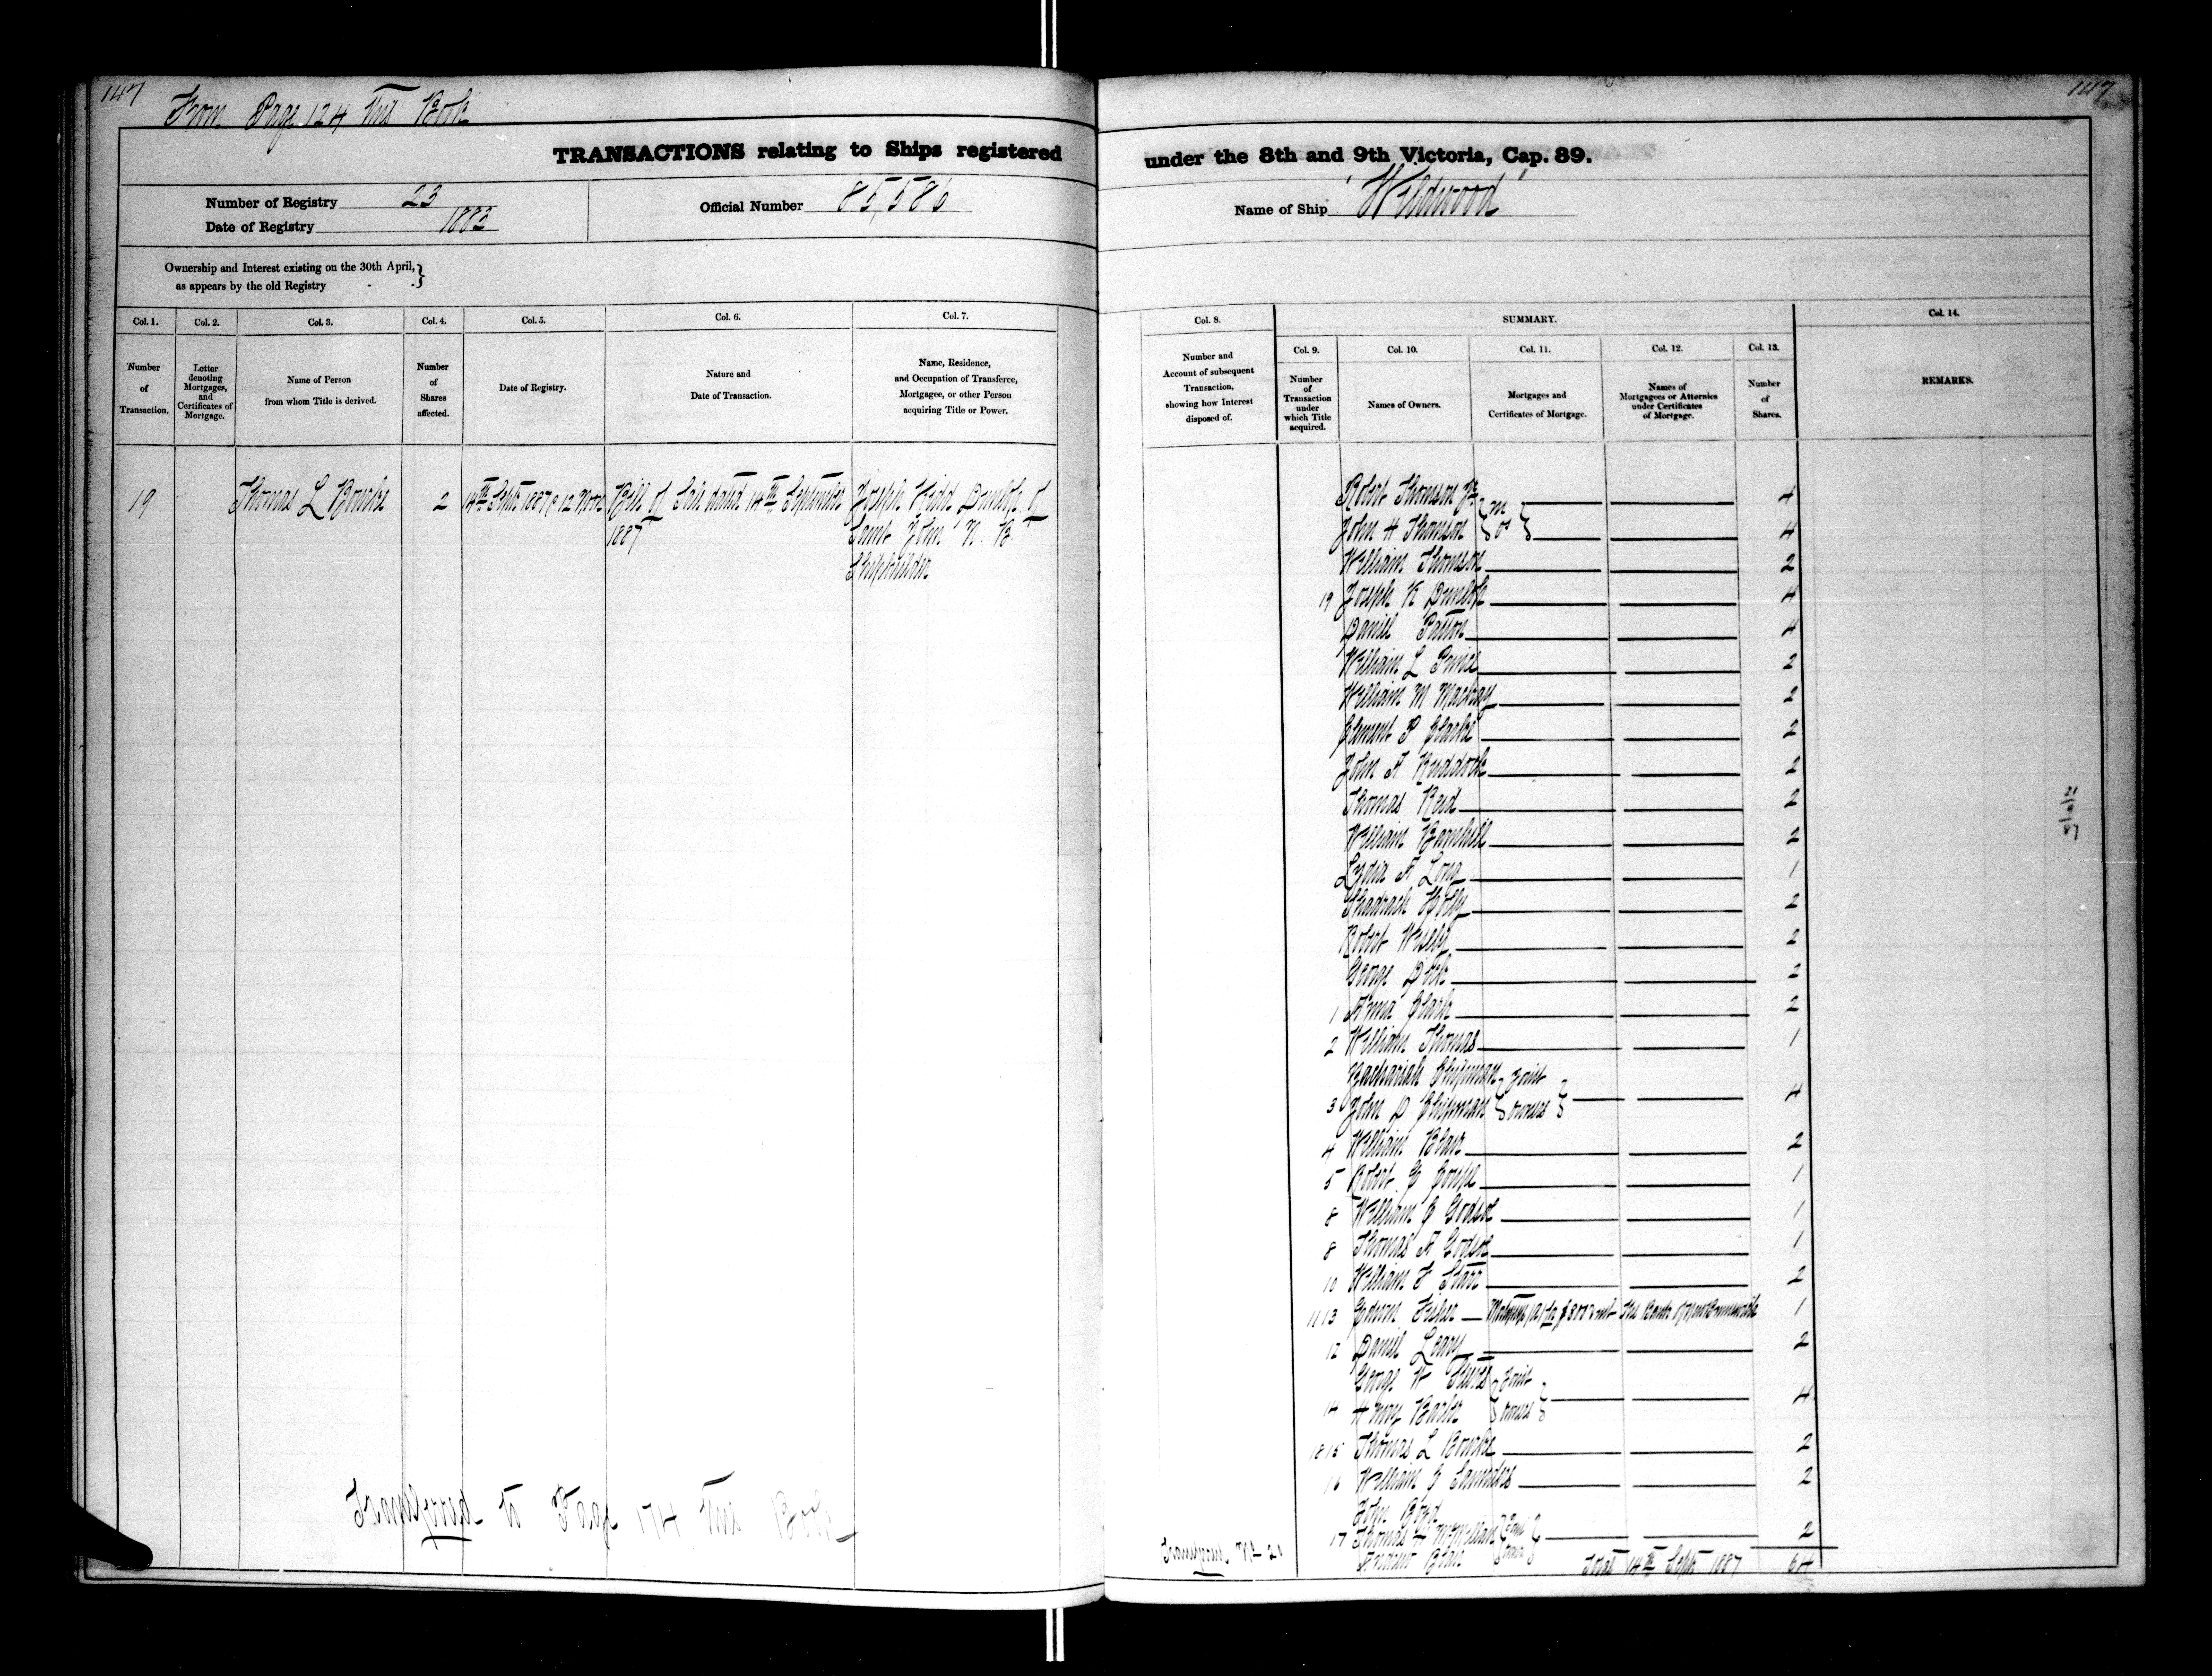 147
147
From Page 124 this Book
TRANSACTIONS relating to Ships registered under the 8th and 9th Victoria, Cap. 89.
Number of Registry 23
Date of Registry 1883
Official Number 85,586
Name of Ship "Wildwood"
Ownership and Interest existing on the 30th April,
as appears by the old Registry - - }
Col. 1.
Number
of
Transaction.
Col. 2.
Letter
denoting
Mortgages,
and
Certificates of
Mortgage.
Col. 3.
Name of Person
from whom Title is derived.
Col. 4.
Number
of
Shares
affected.
Col. 5.
Date of Registry.
Col. 6.
Nature and
Date of Transaction.
Col. 7.
Name, Residence,
and Occupation of Transferee,
Mortgagee, or other Person
acquiring Title or Power.
Col. 8.
Number and
Account of subsequent
Transaction,
showing how Interest
disposed of.
SUMMARY.
Col. 9.
Number
of
Transaction
under
which Title
acquired.
Col. 10.
Names of Owners.
Col. 11.
Mortgages and
Certificates of Mortgage.
Col. 12.
Names of
Mortgagees or Attornies
under Certificates
of Mortgage.
Col. 13.
Number
of
Shares.
Col. 14.
REMARKS.
19
Thomas L Bourke
2
14th Sept 1887 @ 12 Noon
Bill of Sale dated 14th September
1887
Joseph Kidd Dunlop of
Saint John N. B.
Shipbuilder
Robert Thomson Jr 4
John H Thomson 4
William Thomson 2
19 Joseph K Dunlop 4
Daniel Patton 4
William L Prince 2
William M Mackay 2
Clement P Clarke 2
John A Ruddock 2
Thomas Reid 2
William Barnhill 2
Lydia A Long 1
Shadrach Holly 2
Robert Wisely 2
George Dick 2
1 Anna Clark 2
2 William Thomas 1
Zachariah Chipman } Joint
3 John D Chipman } owners 4
4 William Blair 2
5 Robert C 1
8 William C Godsoe 1
8 Thomas A Godsoe 1
10 William F Starr 2
11 13 Edwin Fisher Mortgage The Bank of New Brunswick 1
12 Daniel Leary 2
George W } Joint
14 Henry Barker } owners 4
18 15 Thomas L Bourke 2
16 William E Saunders 2
John Boyd
17 Thomas H McMillan 2
Total 14th Sept 1887 64
Transferred to Page 174 this Book